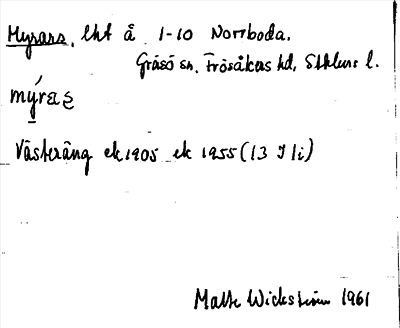 Myrars, lht å 1-10 Norrboda.
Gräsö sn. Frösåkers hd, Sthlms l.
mý̱ra̱s̱
Västeräng ek 1905 ek 1955 (13 I 1i)
Matts Wickström 1961